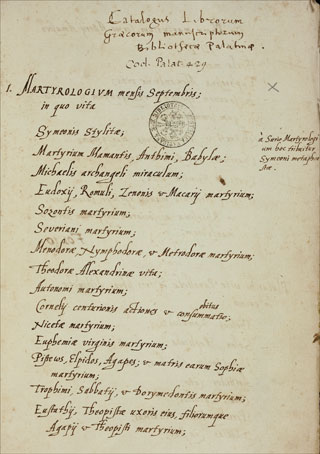 Catalogus Librorum
Græcorum manuscriptorum
Bibliothecæ Palatinæ.
Cod. Palat. 429
1. MARTYROLOGIVM mensis Septembris;
in quo vita
Symeonis Stylitæ;
Martyrium Mamantis, Anthimi, Babylæ;
Michaelis archangeli miraculum;
Eudoxij, Romuli, Zenonis & Macarij martyrium;
Sozontis martyrium;
Severiani martyrium;
Menodoræ, Nymphodoræ, & Metrodoræ martyrium;
Theodoræ Alexandrinæ vita;
Autonomi martyrium;
Cornelij centurionis actiones & consummatio;
obitus
Nicetæ martyrium;
Euphemiæ virginis martyrium;
Pisteus, Elpidos, Agapes; & matris earum Sophiæ
martyrium;
Trophimi, Sabbatij, & Dorymedontis martyrium;
Eustathij, Theopistæ uxoris eius, filiorumque
Agapij & Theopisti martyrium;
à Surio Martyrologium hoc tribuitur
Symeoni metaphrastæ.